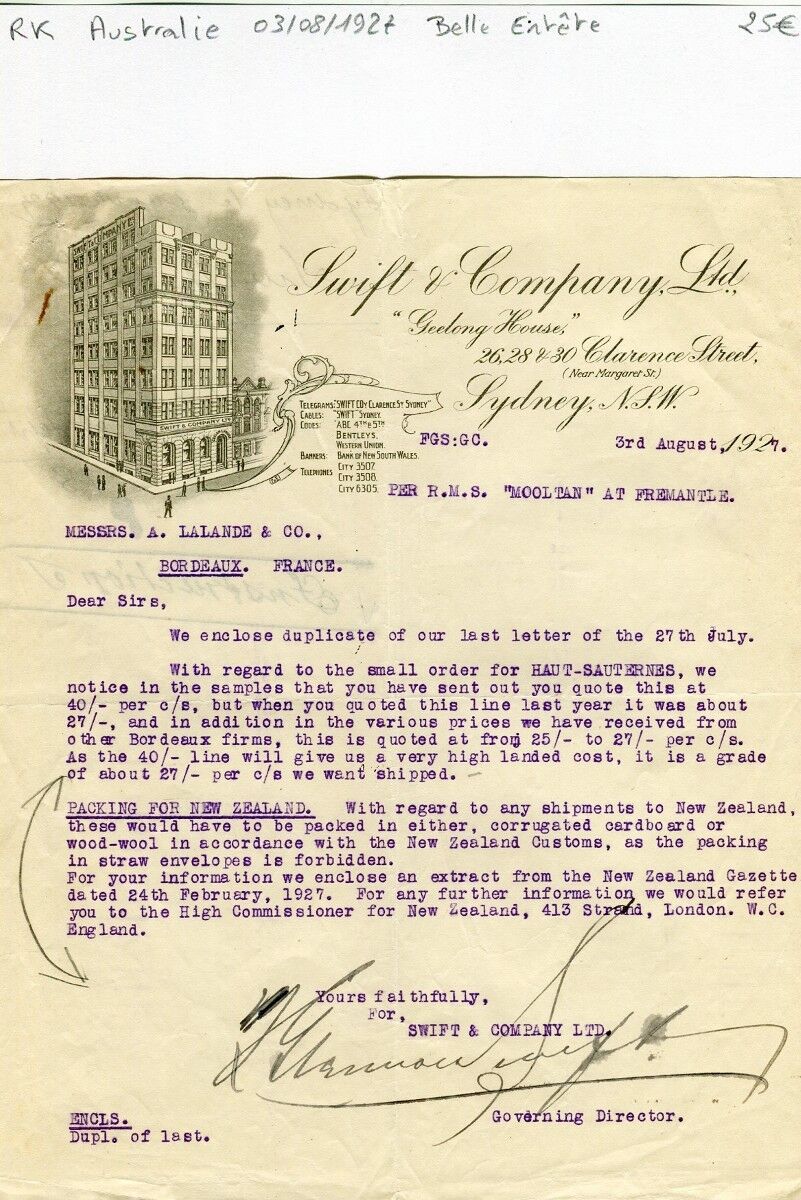 RK Australie 03/08/1927 Belle Entête 25€
SWIFT & COMPANY LD
SWIFT & COMPANY LTD
Swift & Company, Ltd,
"Geelong House,"
26, 28 & 30 Clarence Street,
(Near Margaret St.)
Sydney, N.S.W.
TELEGRAMS: "SWIFT COY CLARENCE ST SYDNEY"
CABLES: "SWIFT" SYDNEY.
CODES: A.B.C. 4TH & 5TH
BENTLEYS.
WESTERN UNION.
BANKERS: BANK OF NEW SOUTH WALES.
TELEPHONES CITY 3507.
CITY 3508.
CITY 6305.
FGS:GC. 3rd August, 1927.
PER R.M.S. "MOOLTAN" AT FREMANTLE.
MESSRS. A. LALANDE & CO.,
BORDEAUX. FRANCE.
Dear Sirs,
We enclose duplicate of our last letter of the 27th July.
With regard to the small order for HAUT-SAUTERNES, we
notice in the samples that you have sent out you quote this at
40/- per c/s, but when you quoted this line last year it was about
27/-, and in addition in the various prices we have received from
other Bordeaux firms, this is quoted at from 25/- to 27/- per c/s.
As the 40/- line will give us a very high landed cost, it is a grade
of about 27/- per c/s we want shipped. -
PACKING FOR NEW ZEALAND. With regard to any shipments to New Zealand,
these would have to be packed in either, corrugated cardboard or
wood-wool in accordance with the New Zealand Customs, as the packing
in straw envelopes is forbidden.
For your information we enclose an extract from the New Zealand Gazette
dated 24th February, 1927. For any further information we would refer
you to the High Commissioner for New Zealand, 413 Strand, London. W.C.
England.
Yours faithfully,
For,
SWIFT & COMPANY LTD.
Governing Director.
ENCLS.
Dupl. of last.